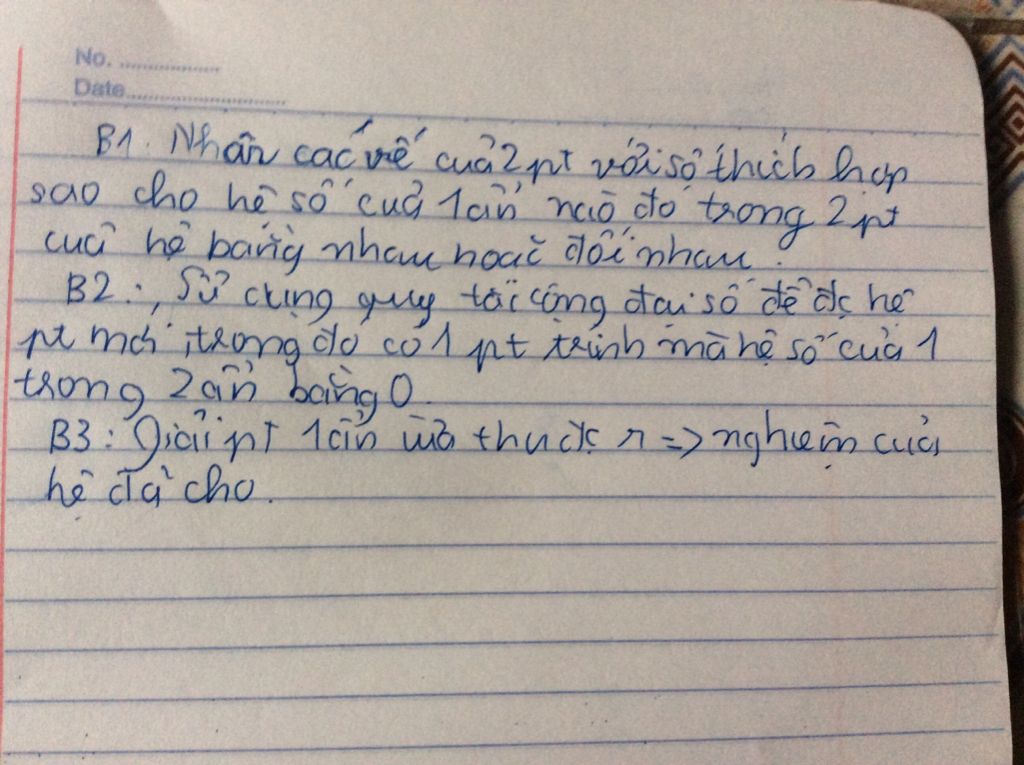 No. ..................
Date............................
B1. Nhân các vế của 2 pt với số thích hợp
sao cho hệ số của 1 ẩn nào đó trong 2 pt
của hệ bằng nhau hoặc đối nhau.
B2:, Sử dụng quy tắc cộng đại số để đc hệ
pt mới, trong đó có 1 pt trình mà hệ số của 1
trong 2 ẩn bằng 0.
B3: Giải pt 1 ẩn vừa thu đc r => nghiệm của
hệ đã cho.